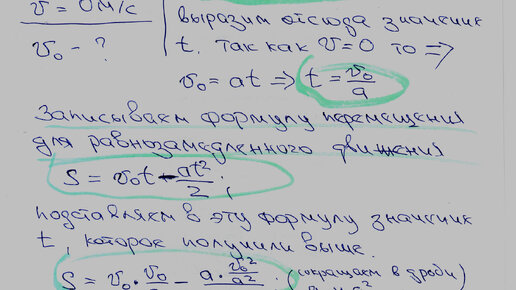 v = 0 м/с
v₀ - ?
выразим отсюда значение
t. Так как v = 0 то ⇒
v₀ = at ⇒ t = v₀/a
Записываем формулу перемещения
для равнозамедленного движения
S = v₀t - at²/2 ;
подставляем в эту формулу значение
t, которое получили выше.
S = v₀ · v₀/a - a · v₀²/a² (сокращаем в дроби)